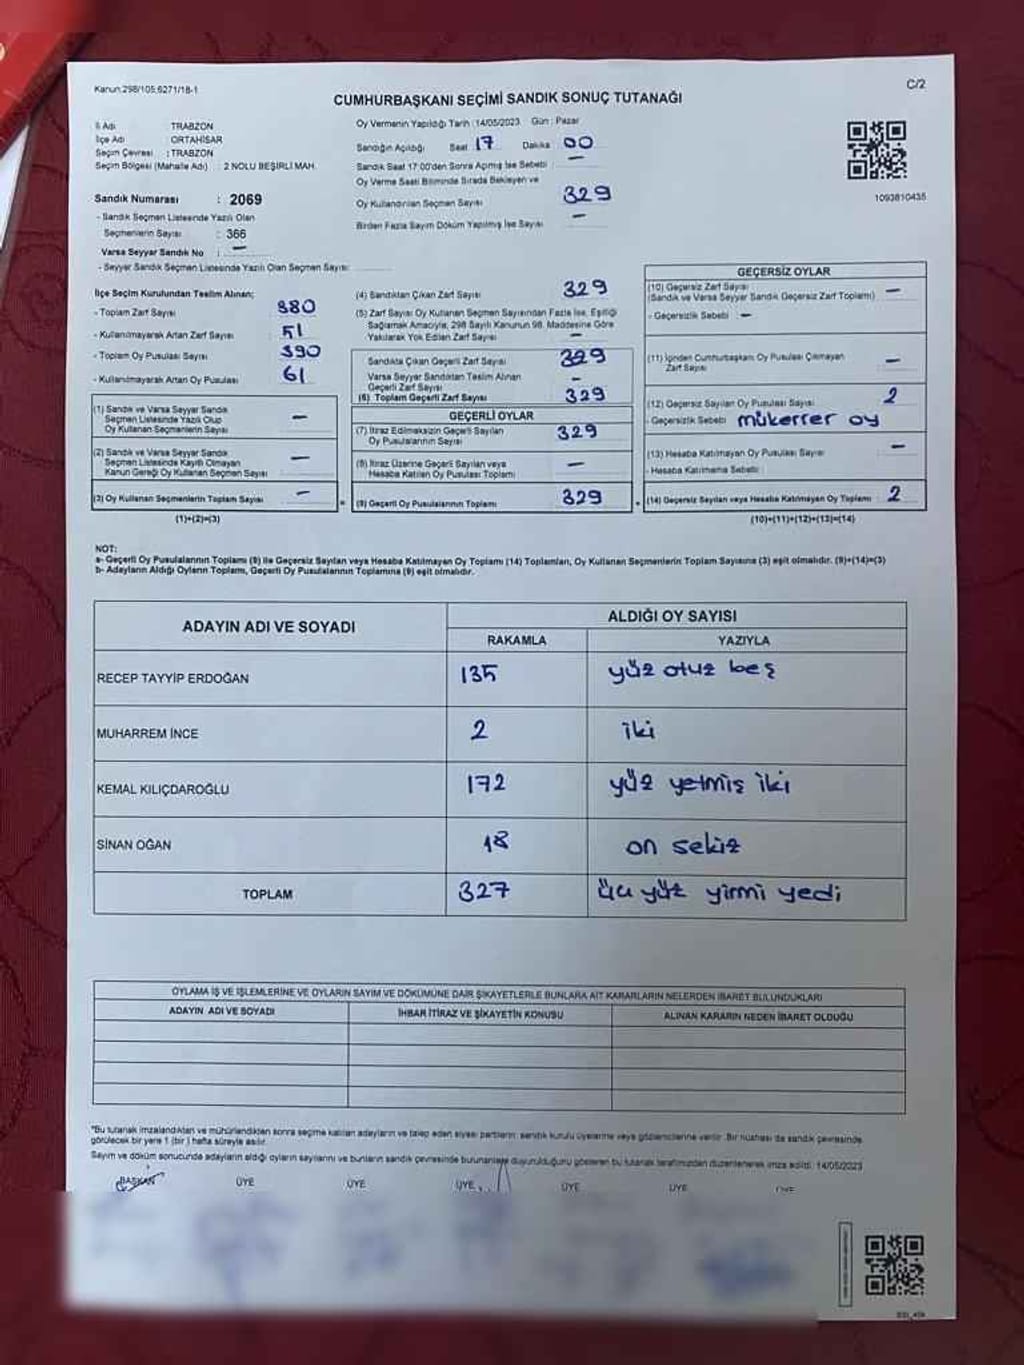 Kanun:298/105;6271/18-1
C/2
CUMHURBAŞKANI SEÇİMİ SANDIK SONUÇ TUTANAĞI
İl Adı : TRABZON
İlçe Adı : ORTAHİSAR
Seçim Çevresi : TRABZON
Seçim Bölgesi (Mahalle Adı) : 2 NOLU BEŞİRLİ MAH.
Oy Vermenin Yapıldığı Tarih : 14/05/2023 Gün : Pazar
Sandığın Açıldığı Saat 17 Dakika 00
Sandık Saat 17:00'den Sonra Açılmış İse Sebebi —
Oy Verme Saati Bitiminde Sırada Bekleyen ve
Oy Kullandırılan Seçmen Sayısı 329
Birden Fazla Sayım Döküm Yapılmış İse Sayısı —
1093810435
Sandık Numarası : 2069
- Sandık Seçmen Listesinde Yazılı Olan
Seçmenlerin Sayısı : 366
Varsa Seyyar Sandık No : —
- Seyyar Sandık Seçmen Listesinde Yazılı Olan Seçmen Sayısı:
İlçe Seçim Kurulundan Teslim Alınan;
- Toplam Zarf Sayısı 380
- Kullanılmayarak Artan Zarf Sayısı 51
- Toplam Oy Pusulası Sayısı 390
- Kullanılmayarak Artan Oy Pusulası 61
(1) Sandık ve Varsa Seyyar Sandık
Seçmen Listesinde Yazılı Olup
Oy Kullanan Seçmenlerin Sayısı —
(2) Sandık ve Varsa Seyyar Sandık
Seçmen Listesinde Kayıtlı Olmayan
Kanun Gereği Oy Kullanan Seçmen Sayısı —
(3) Oy Kullanan Seçmenlerin Toplam Sayısı —
(1)+(2)=(3)
(4) Sandıktan Çıkan Zarf Sayısı 329
(5) Zarf Sayısı Oy Kullanan Seçmen Sayısından Fazla İse, Eşitliği
Sağlamak Amacıyla, 298 Sayılı Kanunun 98. Maddesine Göre
Yakılarak Yok Edilen Zarf Sayısı —
Sandıkta Çıkan Geçerli Zarf Sayısı 329
Varsa Seyyar Sandıktan Teslim Alınan
Geçerli Zarf Sayısı —
(6) Toplam Geçerli Zarf Sayısı 329
GEÇERLİ OYLAR
(7) İtiraz Edilmeksizin Geçerli Sayılan
Oy Pusulalarının Sayısı 329
(8) İtiraz Üzerine Geçerli Sayılan veya
Hesaba Katılan Oy Pusulaları Toplamı —
= (9) Geçerli Oy Pusulalarının Toplamı 329
GEÇERSİZ OYLAR
(10) Geçersiz Zarf Sayısı
(Sandık ve Varsa Seyyar Sandık Geçersiz Zarf Toplamı) —
- Geçersizlik Sebebi : —
(11) İçinden Cumhurbaşkanı Oy Pusulası Çıkmayan
Zarf Sayısı —
(12) Geçersiz Sayılan Oy Pusulası Sayısı 2
- Geçersizlik Sebebi mükerrer oy
(13) Hesaba Katılmayan Oy Pusulası Sayısı —
- Hesaba Katılmama Sebebi :
+ (14) Geçersiz Sayılan veya Hesaba Katılmayan Oy Toplamı 2
(10)+(11)+(12)+(13)=(14)
NOT:
a- Geçerli Oy Pusulalarının Toplamı (9) ile Geçersiz Sayılan veya Hesaba Katılmayan Oy Toplamı (14) Toplamları, Oy Kullanan Seçmenlerin Toplam Sayısına (3) eşit olmalıdır. (9)+(14)=(3)
b- Adayların Aldığı Oyların Toplamı, Geçerli Oy Pusulalarının Toplamına (9) eşit olmalıdır.
ADAYIN ADI VE SOYADI ALDIĞI OY SAYISI
RAKAMLA YAZIYLA
RECEP TAYYİP ERDOĞAN 135 yüz otuz beş
MUHARREM İNCE 2 iki
KEMAL KILIÇDAROĞLU 172 yüz yetmiş iki
SİNAN OĞAN 18 on sekiz
TOPLAM 327 üç yüz yirmi yedi
OYLAMA İŞ VE İŞLEMLERİNE VE OYLARIN SAYIM VE DÖKÜMÜNE DAİR ŞİKAYETLERLE BUNLARA AİT KARARLARIN NELERDEN İBARET BULUNDUKLARI
ADAYIN ADI VE SOYADI İHBAR İTİRAZ VE ŞİKAYETİN KONUSU ALINAN KARARIN NEDEN İBARET OLDUĞU
"Bu tutanak imzalandıktan ve mühürlendikten sonra seçime katılan adayların ve talep eden siyasi partilerin sandık kurulu üyelerine veya gözlemcilerine verilir. Bir nüshası da sandık çevresinde
görülecek bir yere 1 (bir) hafta süreyle asılır.
Sayım ve döküm sonucunda adayların aldığı oyların sayılarını ve bunların sandık çevresinde bulunanlara duyurulduğunu gösteren bu tutanak tarafımızdan düzenlenerek imza edildi. 14/05/2023
BAŞKAN ÜYE ÜYE ÜYE ÜYE ÜYE ÜYE